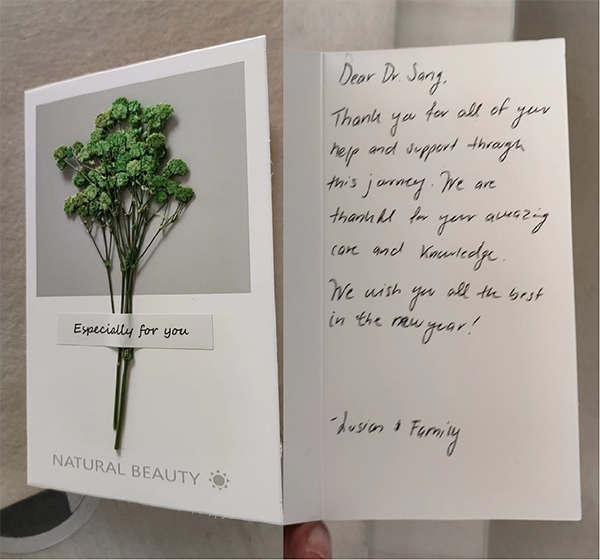 Especially for you
NATURAL BEAUTY
Dear Dr. Sang,
Thank you for all of your
help and support through
this journey. We are
thankful for your amazing
care and knowledge.
We wish you all the best
in the new year!
& Family